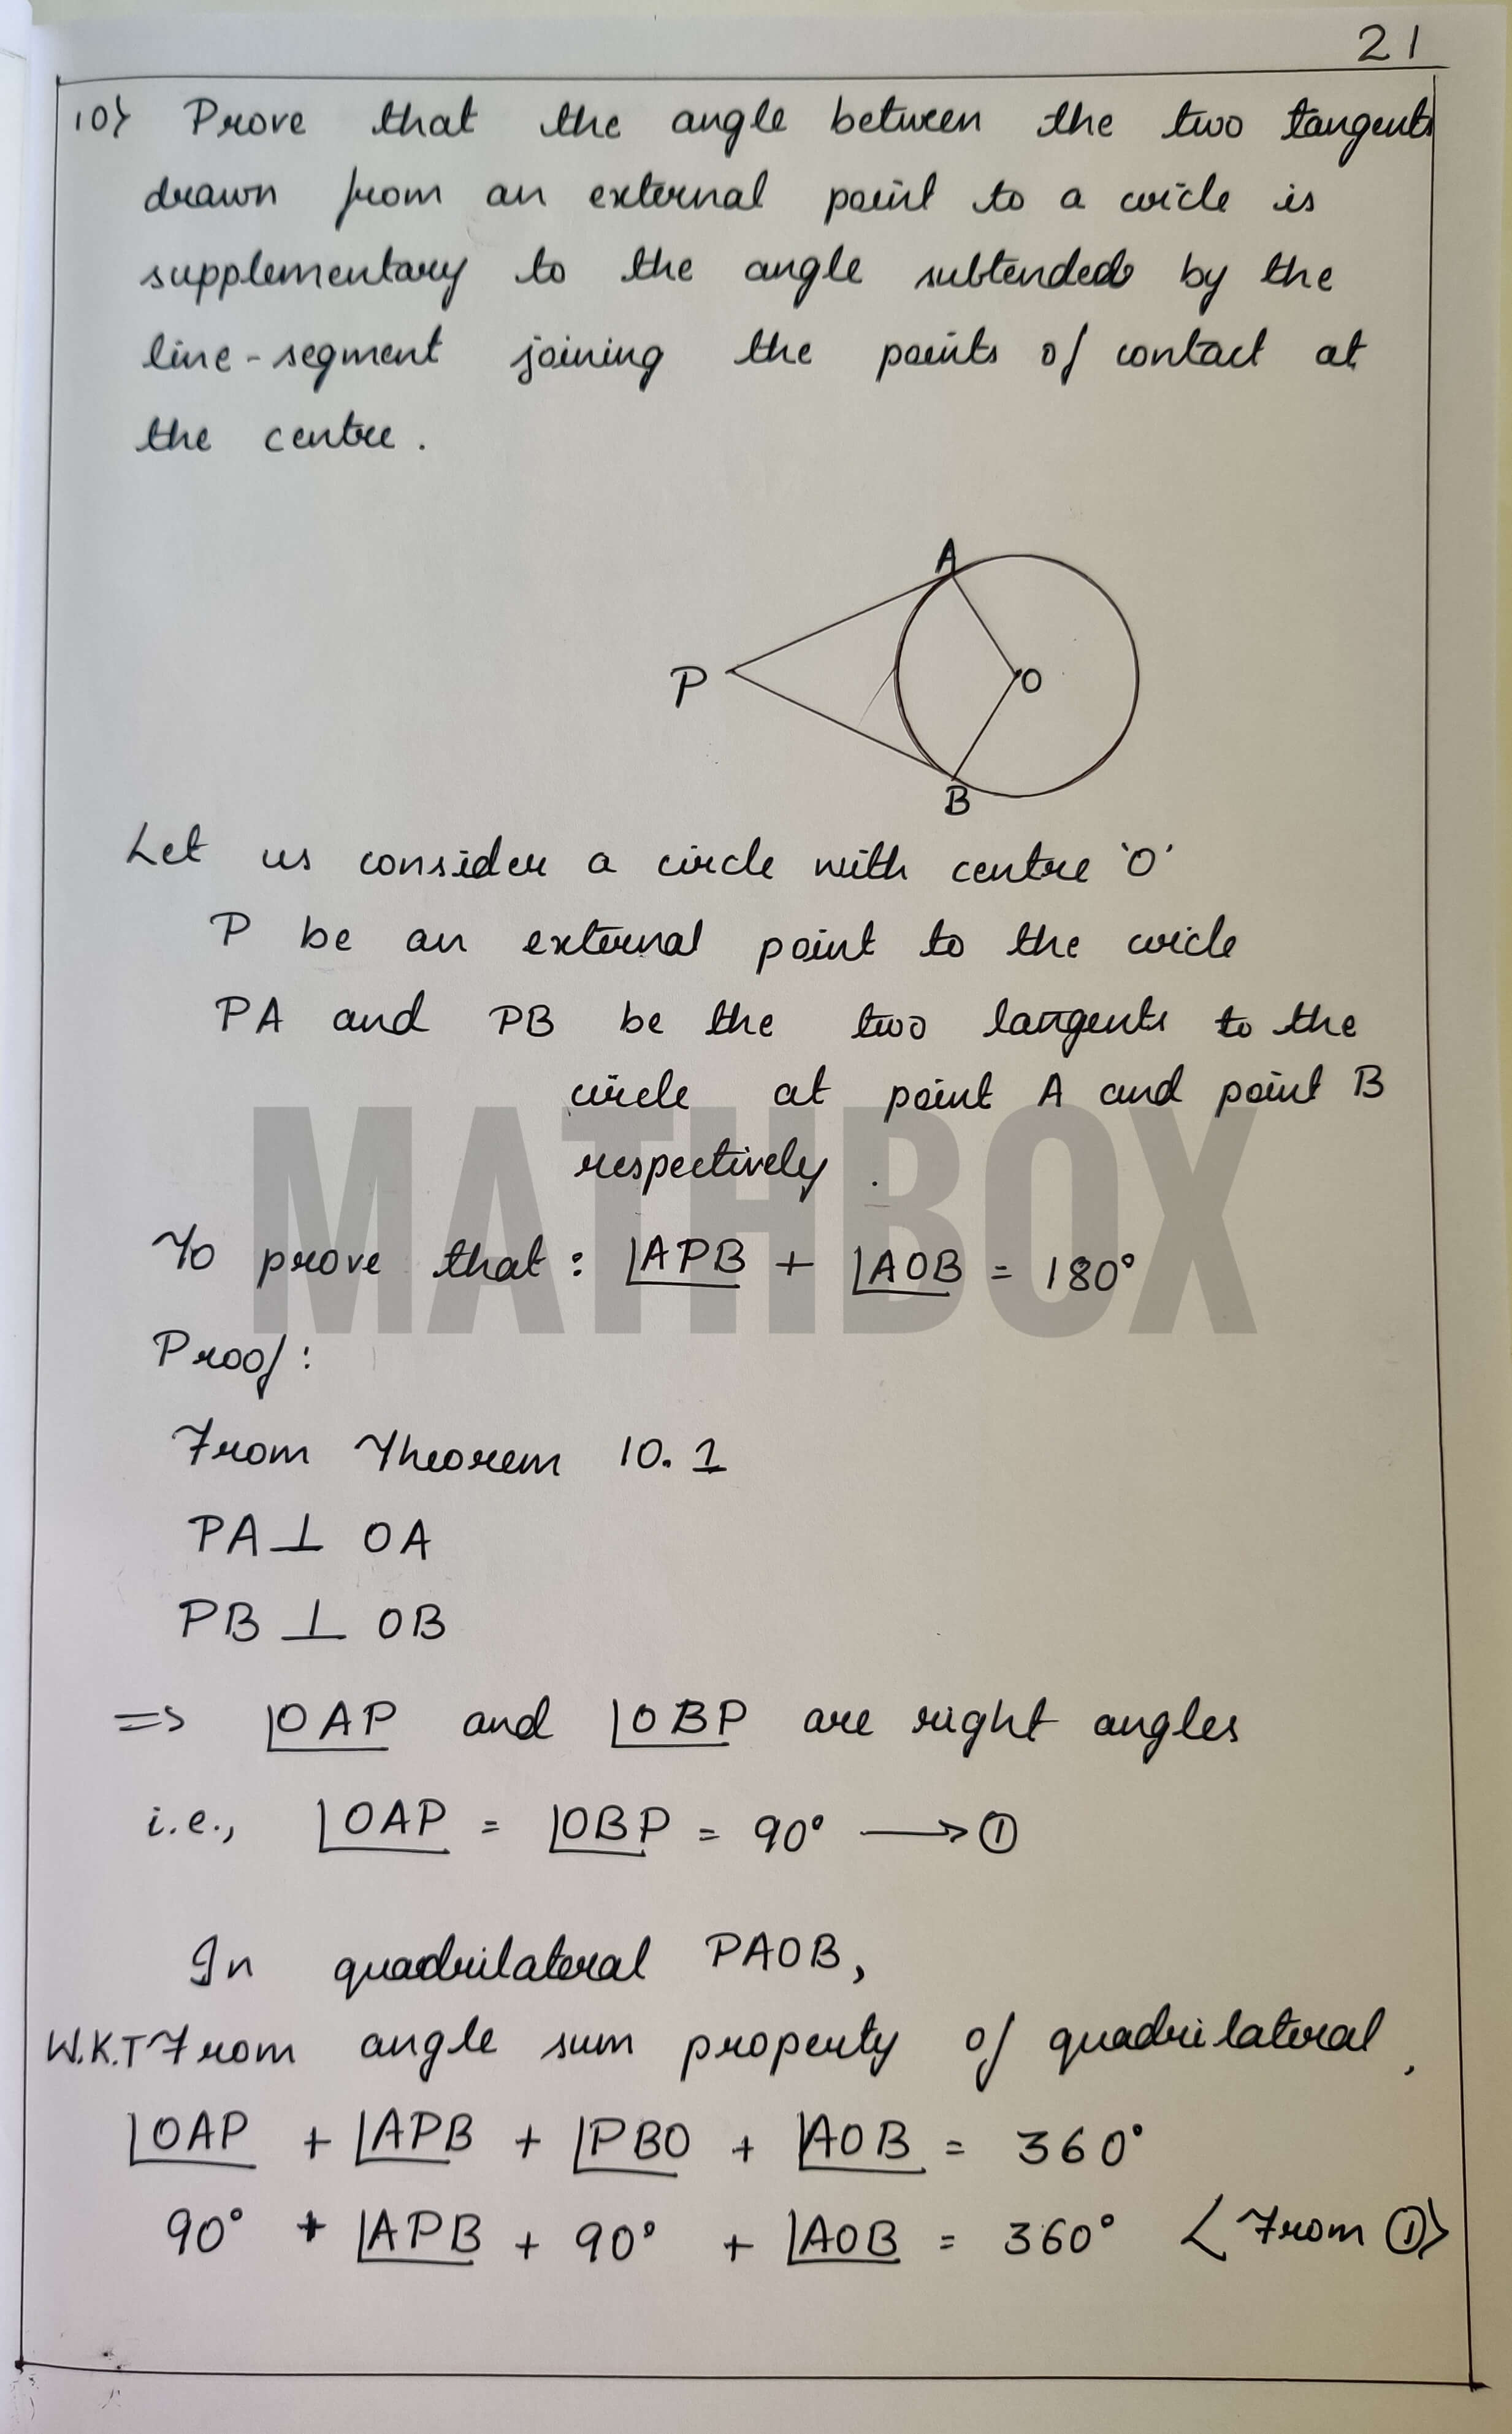 21
10) Prove that the angle between the two tangents
drawn from an external point to a circle is
supplementary to the angle subtended by the
line-segment joining the points of contact at
the centre.
A
P
O
B
Let us consider a circle with centre 'O'
P be an external point to the circle
PA and PB be the two tangents to the
circle at point A and point B
respectively.
MATHBOX
To prove that: ∠APB + ∠AOB = 180°
Proof:
From Theorem 10.1
PA ⊥ OA
PB ⊥ OB
=> ∠OAP and ∠OBP are right angles
i.e., ∠OAP = ∠OBP = 90° ⟶ ①
In quadrilateral PAOB,
W.K.T From angle sum property of quadrilateral,
∠OAP + ∠APB + ∠PBO + ∠AOB = 360°
90° + ∠APB + 90° + ∠AOB = 360° <From ①>